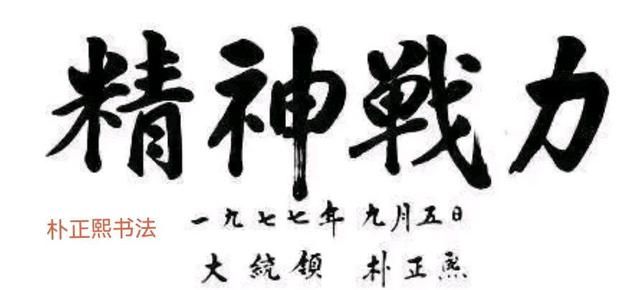 精神戦力
朴正熙书法
一九七七年 九月五日
大統領 朴正熙